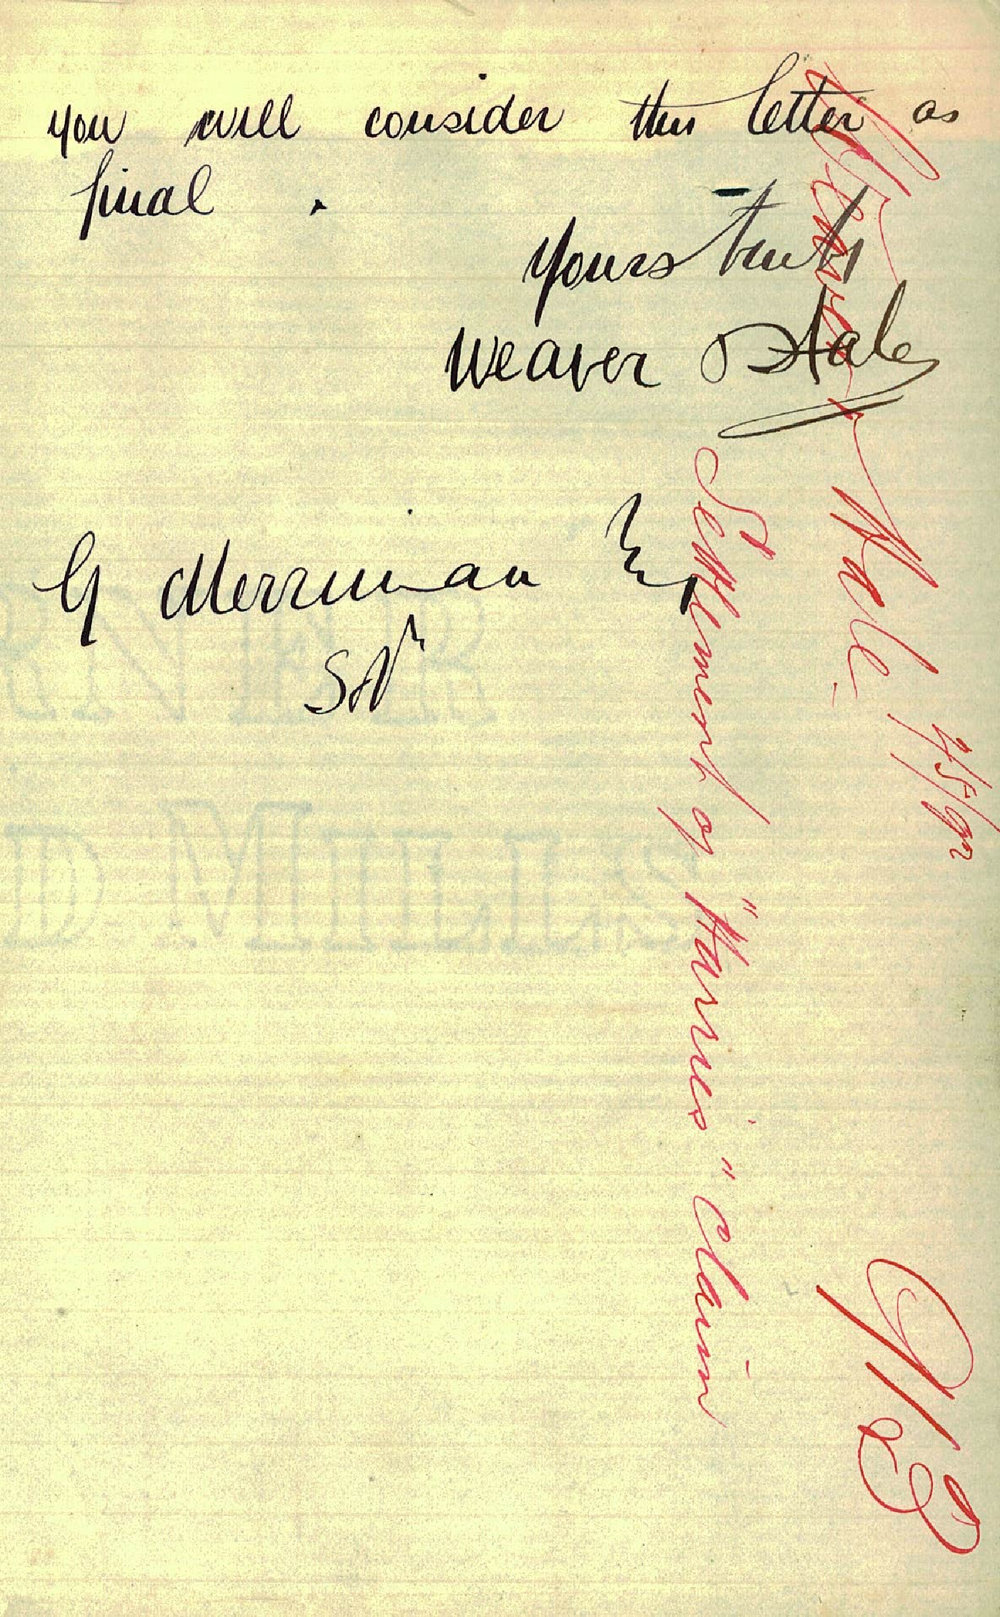 you will consider this letter as
final.
Yours truly
Weaver & Hale
G Merriman
Weaver & Hale 7/5/92
Settlement of "Harries" Claim